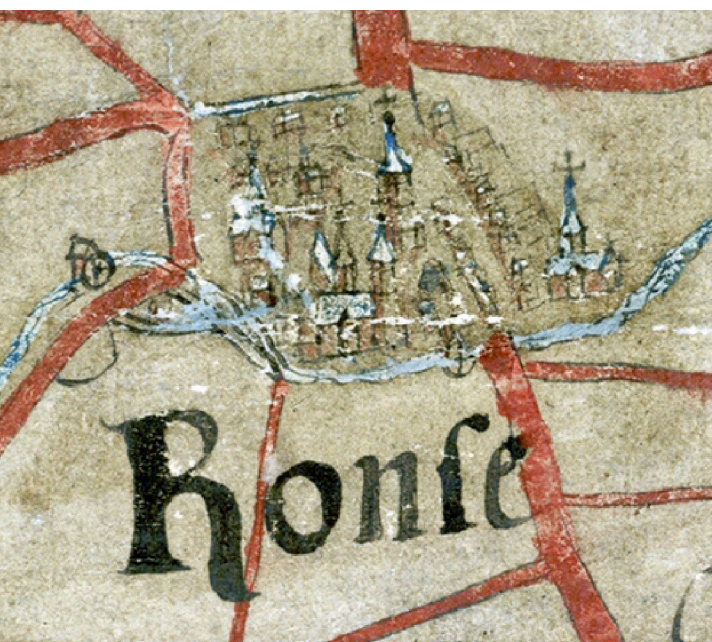 Ronſe